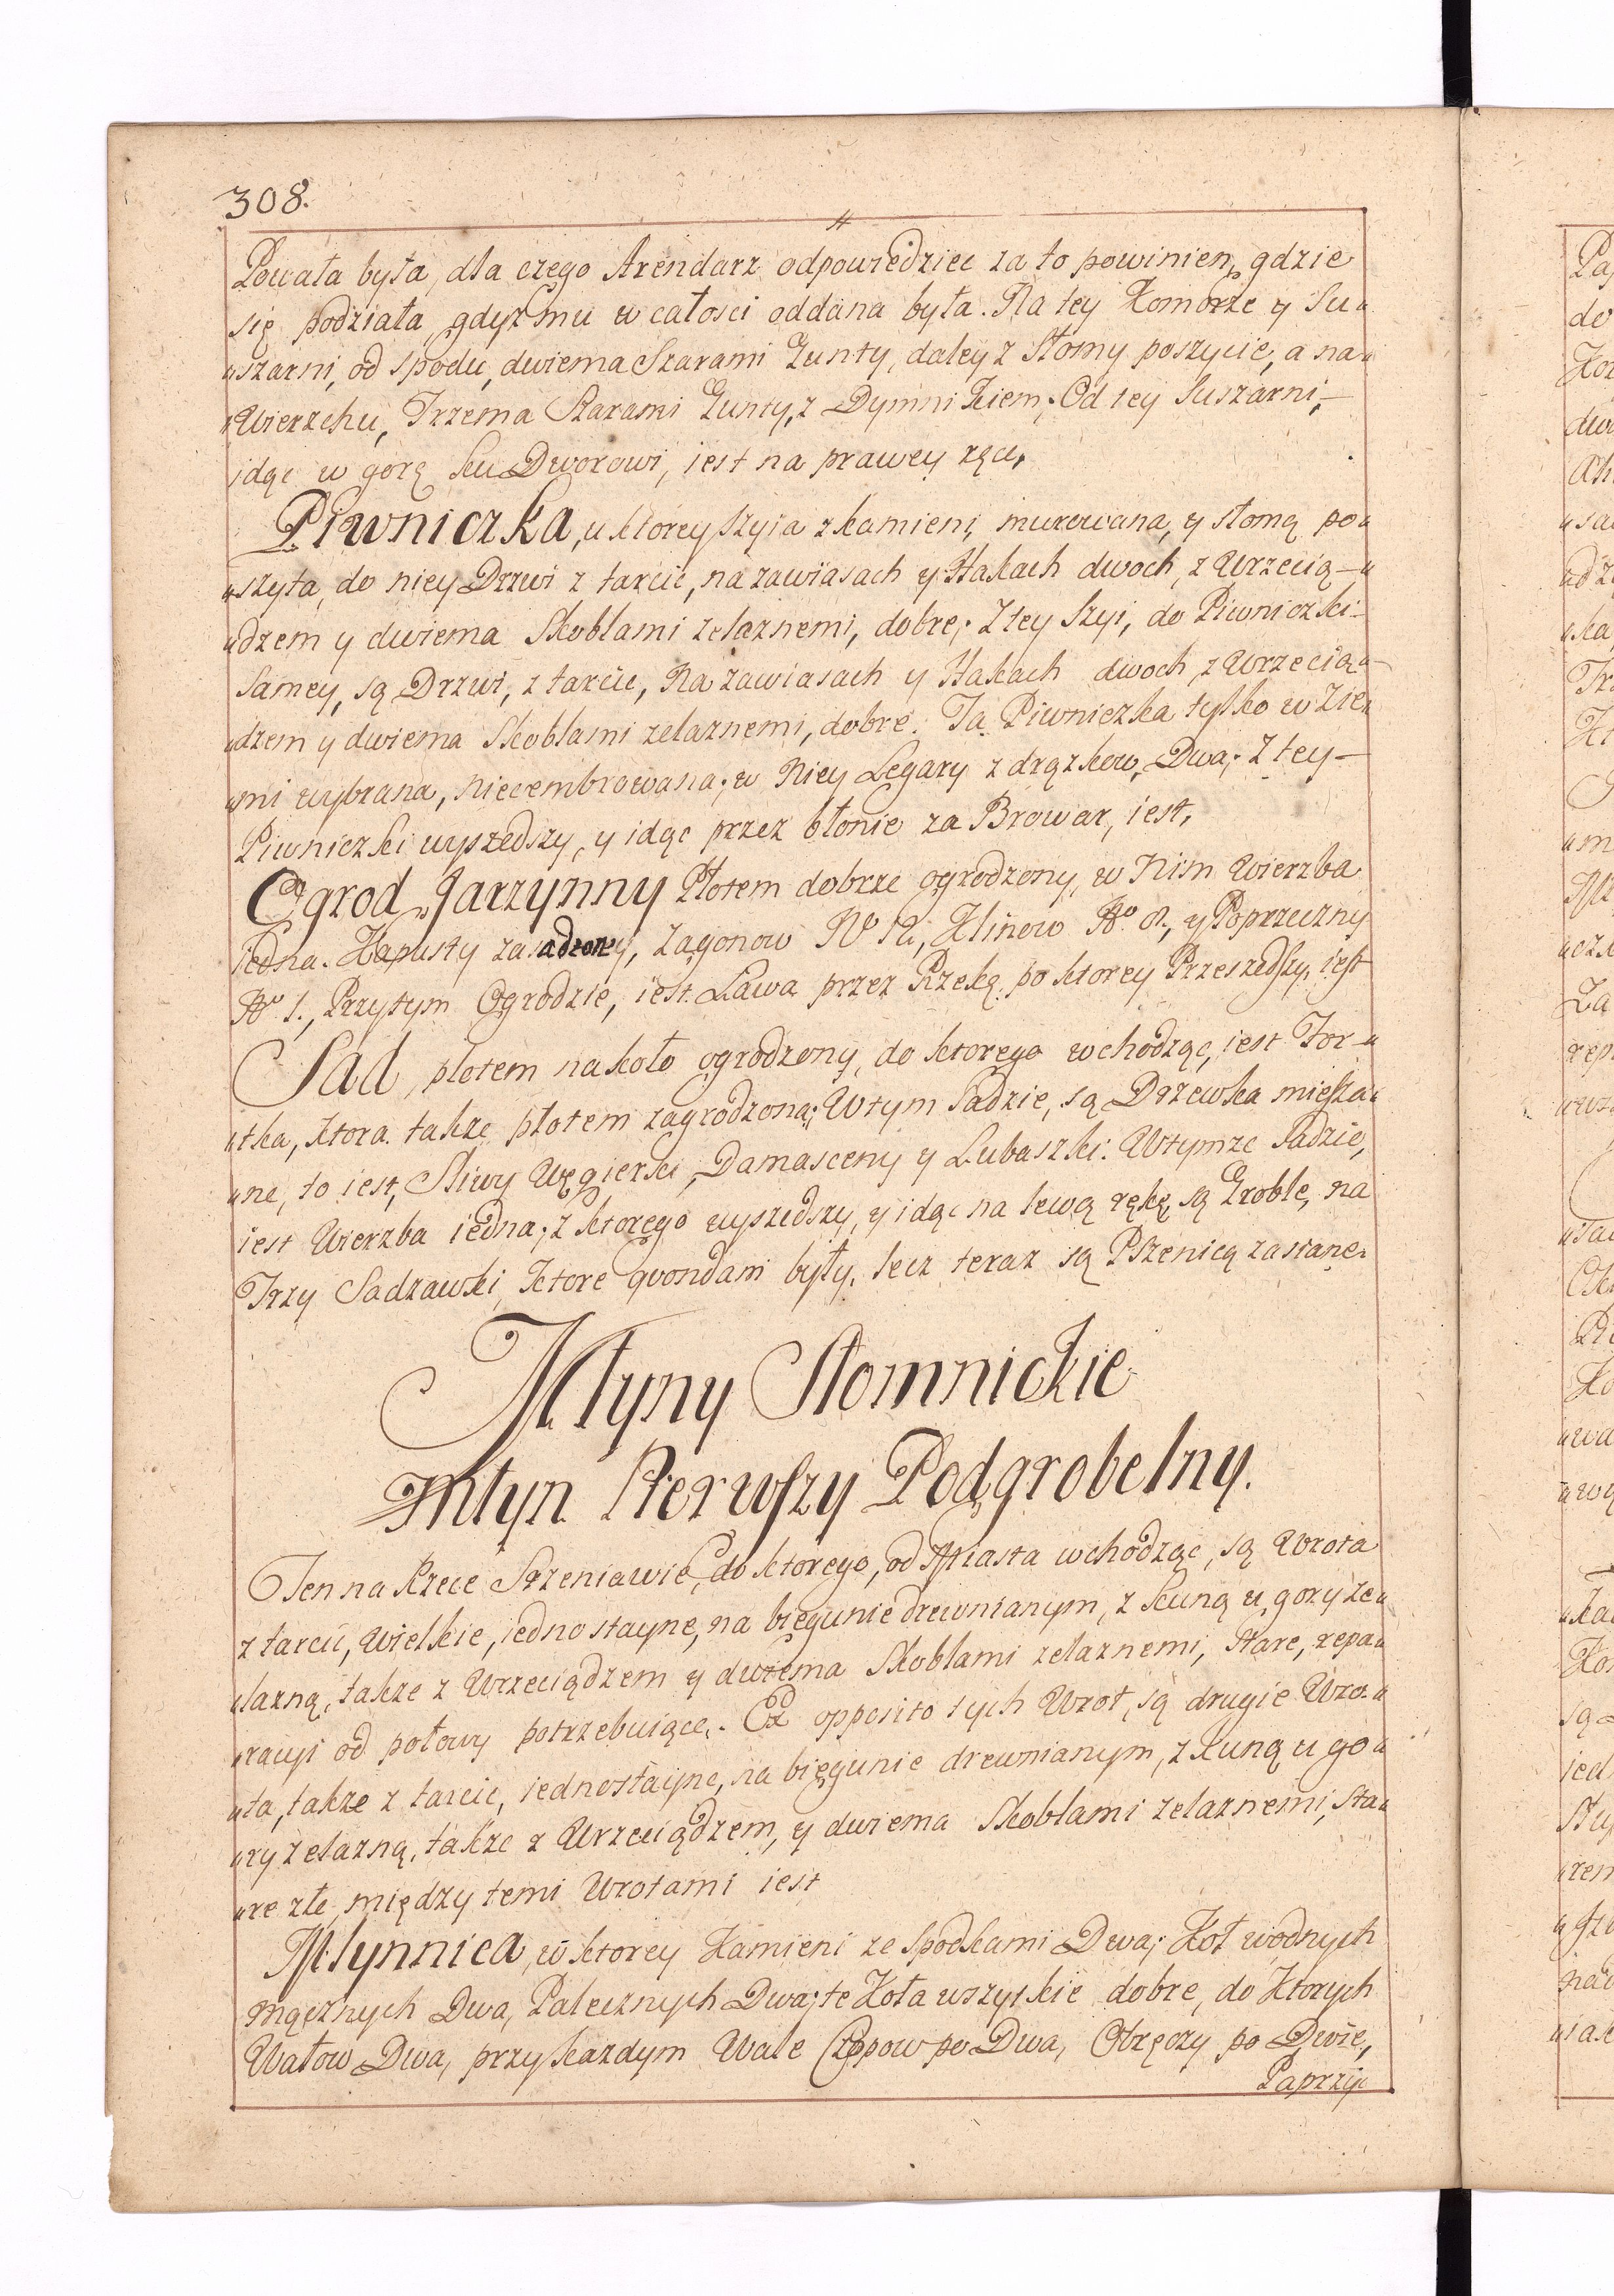 308.
Powała była, dla czego Arendarz odpowiedziec za to powinien, gdzie
się podziała, gdyz mu w całosci oddana była. Na tey Komorze y Su„
„szarni, od spodu, dwiema Szarami Gunty, daley z Słomy poszycie, a na„
„Wierzchu, Trzema Szarami Gunty, z Dymnikiem. Od tey Suszarni,—
idąc w gorę ku Dworowi, iest na prawey ręce,
Piwniczka, u ktorey Szyia z kamieni, murowana, y słomą po„
„szyta, do niey Drzwi z tarcic, na zawiasach y Hakach dwoch, z Wrzecią—„
„dzem y dwiema Skoblami zelaznemi, dobre; Z tey Szyi, do Piwniczki-
Samey, są Drzwi, z tarcic, Na zawiasach y Hakach dwoch, z Wrzecią„
„dzem y dwiema Skoblami zelaznemi, dobre. Ta Piwniczka tylko w Zie„
„mi wybrana, niecembrowana; w Niey Legary z drązkow, Dwa; Z tey—
Piwniczki wyszedszy, y idąc przez błonie za Browar, iest,
Ogrod Jarzynny Płotem dobrze ogrodzony, w Nim Wierzba
iedna. Kapusty zasadzoney, Zagonow No 12, Klinow No 8., y Poprzeczny
No 1., Przytym Ogrodzie, iest Ława przez Rzekę po ktorey Przeszedszy, iest
Sad, płotem nakoło ogrodzony, do ktorego wchodząc, iest For„
„tka, ktora takze płotem zagrodzona; W tym Sadzie, są Drzewka miesza„
„ne, to iest, Sliwy Węgierki, Damasceny y Lubaszki. W tymze Sadzie,
iest Wierzba iedna; z ktorego wyszedszy, y idąc na lewą rękę, są Groble, na
Trzy Sadzawki, Ktore quondam były, lecz teraz są Pszenicą zasiane.
Młyny Słomnickie
Młyn Pierwszy Podgrobelny.
Ten na Rzece Szreniawie, do ktorego, od Miasta wchodząc, są Wrota
z tarcic, Wielkie, iednostayne, na biegunie drewnianym, z Kuną u gory ze„
„lazną, takze z Wrzeciądzem y dwiema Skoblami zelaznemi, Stare, repa„
„racyi od połowy potrzebuiące. Ex opposito tych Wrot, są drugie Wro„
„ta, takze z tarcic, iednostayne, na biegunie drewnianym, z Kuną u go„
„ry zelazną, takze z Wrzeciądzem, y dwiema Skoblami zelaznemi, Sta„
„re złe, między temi Wrotami iest
Młynnica, w ktorey Kamieni ze Spodkami Dwa; Koł wodnych
mącznych Dwa, Palecznych Dwa; te Koła wszyskie dobre, do Ktorych
Wałow Dwa, przy kazdym Wale Czopow po Dwa, Obręczy po Dwie,
Paprzyc